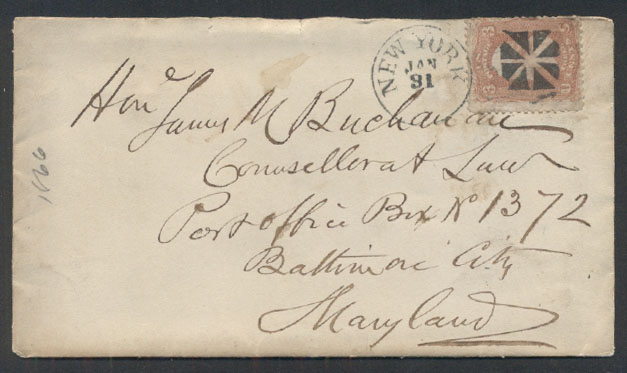 NEW YORK
JAN
31
3 3
Hon^e James M Buchanan
Counsellor at Law
Post office Box No 1372
Baltimore City
Maryland
1866